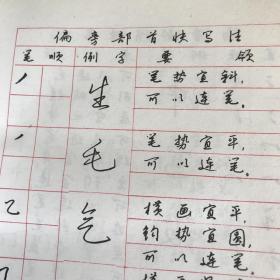 偏旁部首快写法
笔顺 例字 要领
丿 生 笔势宜斜,
可以连笔。
丿 毛 笔势宜平,
可以连笔。
乙 气 横画宜平,
钩势宜圆,